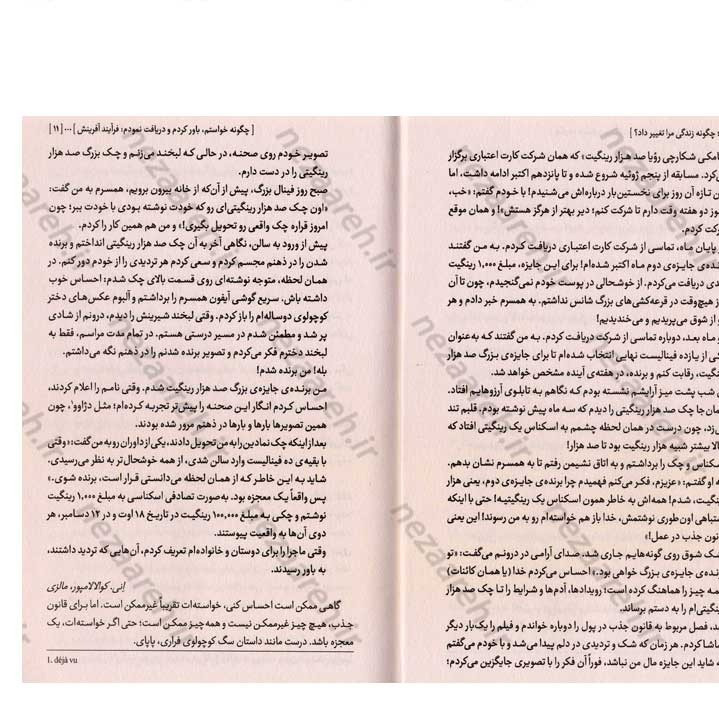 : چگونه زندگی مرا تغییر داد؟ ]
امکی شکارچی رؤیا صد هـزار رینگیت» که همان شرکت کارت اعتباری برگزار
کرد. مسابقه از پنجم ژوئیه شروع شده و تا پانزدهم اکتبر ادامه داشت، اما
ن تازه آن روز برای نخستین‌بار درباره‌اش می‌شنیدم! با خـودم گفتم: «خب،
وز دو هفته وقت دارم تا شرکت کنم؛ دیر بهتر از هرگز هستش»! و همان موقع
رکت کردم.
پایان ماه، تماسی از شرکت کارت اعتباری دریافت کـردم. بـه مـن گفتنـد
نده‌ی جایزه‌ی دوم ماه اکتبر شده‌ام! برای این جایزه، مبلـغ ۱,۰۰۰ رینگیت
دی دریافت می‌کردم. از خوشحالی در پوست خودم نمی‌گنجیدم، چون تا آن
ز هیچ‌وقت در قرعه‌کشی‌های بزرگ شانس نداشتم. به همسرم خبر دادم و هر
و از شوق می‌پریدیم و می‌خندیدیم!
و مـاه بعـد، دوباره تماسی از شرکت دریافـت کـردم. بـه من گفتنـد که به‌عنوان
کی از یـازده فینالیسـت نهایی انتخاب شـده‌ام تا برای جایزه‌ی بـزرگ صد هزار
نگیت، رقابت کنم و برنده، در هفته‌ی آینده مشخص خواهد شد.
شب پشت میـز آرایشـم نشسـته بودم کـه نگاهـم بـه تابلـوی آرزوهایم افتاد.
مان‌جا چک صد هزار رینگیتی را دیدم که سـه ماه پیش نوشته بودم. قلبم تند
ی‌زد، چون درست در همان لحظه چشمم به اسکناس یک رینگیتی افتاد که
الا بیشتر شبیه هزار رینگیت بود تا صد هزار!
سکناس و چک را برداشتم و به اتاق نشیمن رفتم تا به همسرم نشان بدهم.
ه او گفتـم: «عزیزم، فکر می‌کنم فهمیدم چرا برنده‌ی جایزه‌ی دوم، یعنی هزار
نگیت، شدم! همه‌اش به خاطر همون اسکناس یک رینگیتیـه! حتی با اینکه
شتباهی اون‌طوری نوشتمش، خدا باز هم خواسته‌ام رو به من رسوند! این یعنی
نون جذب در عمل!»
شک شوق روی گونه‌هایم جاری شد. صـدای آرامـی در درونـم می‌گفت: «تو
نده‌ی جایزه‌ی بزرگ خواهی بود.» احساس می‌کردم خدا (یا همان کائنات)
مـه چیـز را هماهنگ کرده است؛ رویدادها، آدم‌ها و شرایط را تـا چک صد هزار
نگیتی‌ام را به دستم برساند.
د، فصل مربوط به قانون جذب در پول را دوباره خواندم و فیلم را یک‌بار دیگر
ماشا کردم. هر زمان که شک و تردیدی در دلم پیدا می‌شد و با خودم می‌گفتم
ه شاید این جایزه مال من نباشد، فوراً آن فکر را با تصویری جایگزین می‌کردم؛
[ چگونه خواستم، باور کردم و دریافت نمودم: فرآیند آفرینش ] ... [ ۱۱ ]
تصویـر خـودم روی صحنـه، در حالـی کـه لبخنـد می‌زنـم و چـک بزرگ صـد هزار
رینگیتی را در دست دارم.
صبح روز فینال بزرگ، پیش از آن‌که از خانه بیرون برویم، همسرم به من گفت:
«اون چـک صد هزار رینگیتی‌ای رو که خودت نوشته بـودی با خودت ببر؛ چون
امروز قراره چک واقعی رو تحویل بگیری!» و من هم همین کار را کردم.
پیش از ورود به سالن، نگاهی آخر به آن چک صد هزار رینگیتی انداختم و برنده
شدن را در ذهنم مجسم کردم و سعی کردم هر تردیدی را از خودم دور کنم. در
همـان لحظه، متوجه نوشته‌ای روی قسمت بالای چک شدم: احساس خوب
داشته باش. سریع گوشی آیفون همسرم را برداشتم و آلبوم عکس‌هـای دختر
کوچولوی دوساله‌ام را باز کردم. وقتی لبخند شیرینش را دیدم، درونم از شادی
پر شد و مطمئن شدم در مسیر درستی هستم. در تمام مدت مراسم، فقط به
لبخند دخترم فکر می‌کردم و تصویر برنده شدنم را در ذهنم نگه می‌داشتم.
بله! من برنده شدم!
مـن برنـده‌ی جایزه‌ی بزرگ صـد هزار رینگیت شدم. وقتی نامـم را اعلام کردند،
احسـاس کـردم انـگار ایـن صحنـه را پیش‌تر تجربـه کرده‌ام؛ مثـل دژاوو۱، چون
همین تصویرها بارها و بارها در ذهنم مرور شده بودند.
بعد از اینکه چک نمادین را به من تحویل دادند، یکی از داوران رو به من گفت: «وقتی
با بقیه‌ی ده فینالیسـت وارد سالن شدی، از همه خوشحال‌تر به نظر می‌رسیدی.
شـاید بـه ایـن خاطـر کـه از همـان لحظه می‌دانسـتی قـرار اسـت، برنده شوی.»
پس واقعاً یـک معجزه بود. به‌صورت تصادفی اسکناسی به مبلغ ۱,۰۰۰ رینگیت
نوشـتم و چکـی بـه مبلـغ ۱۰۰,۰۰۰ رینگیـت در تاریـخ ۱۸ اوت و در ۱۲ دسـامبر، هر
دوی آن‌ها به واقعیت پیوستند.
وقتی ماجرا را برای دوستان و خانواده‌ام تعریف کردم، آن‌هایی که تردید داشتند،
به باور رسیدند.
اِنی. کوآلالامپور، مالزی
گاهـی ممکن است احساس کنی، خواسته‌ات تقریباً غیرممکن است. اما بـرای قانون
جـذب، هیـچ چیـز غیرممکـن نیسـت و همه‌چیز ممکن اسـت؛ حتی اگـر خواسـته‌ات، یک
معجزه باشد. درست مانند داستان سگ کوچولوی فراری، پاپای.
1. déjà vu
nezareh.ir